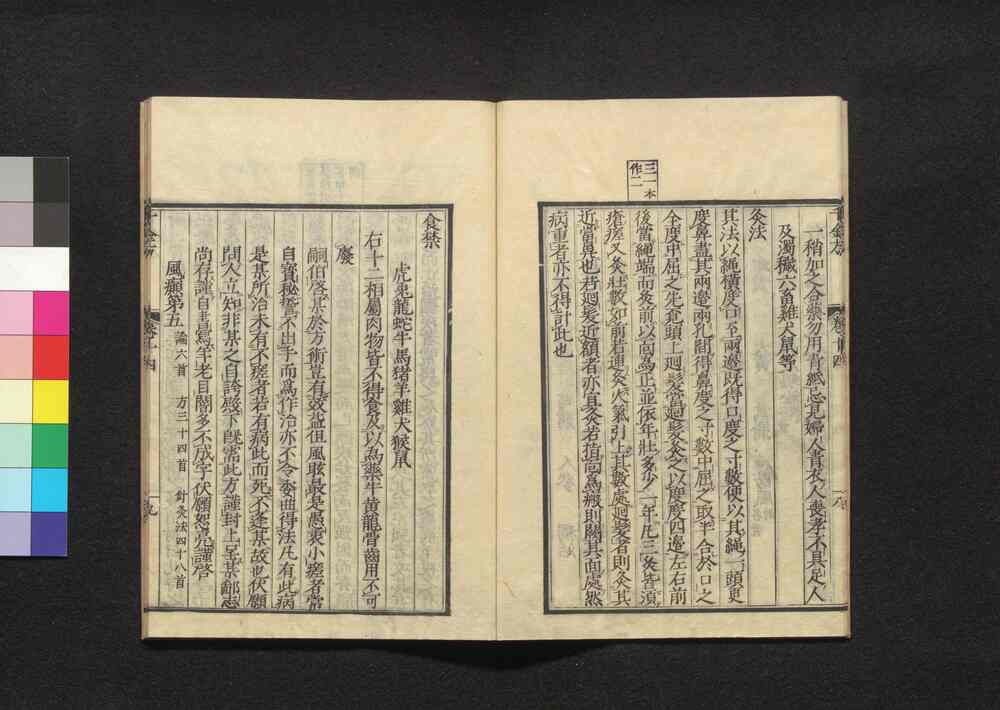 三一本
作二
一稍加之合藥勿用青紙忌見婦人青衣人喪孝不具足人
及濁穢六畜雞犬鼠等
灸法
其法以繩橫度口至兩邊既得口度之寸數便以其繩一頭更
度鼻盡其兩邊兩孔間得鼻度之寸數中屈之取半合於口之
全度中屈之先覓頭上迴髮當迴髮灸之以度度四邊左右前
後當繩端而灸前以面為正並依年壯多少一年凡三灸皆須
瘡瘥又灸壯數如前若連灸火氣引上其數處迴髮者則灸其
近當鼻也若迴髮近額者亦宜灸若指面為瘢則闕其面處然
病重者亦不得計此也
食禁
虎兔龍蛇牛馬猪羊雞犬猴鼠
右十二相屬肉物皆不得食及以為藥牛黃龍骨齒用不可
廢
嗣伯啓某於方術豈有效益但風眩最是愚衷小瘥者常
自寶秘誓不出手而為作治亦不令委曲得法凡有此病
是某所治未有不瘥者若有病此而死不逢某故也伏願
問人立知非某之自誇殿下既需此方謹封上呈某鄙志
尚存謹自書寫年老目闇多不成字伏願恕亮謹啓
風癲第五 論六首 方三十四首 針灸法四十八首